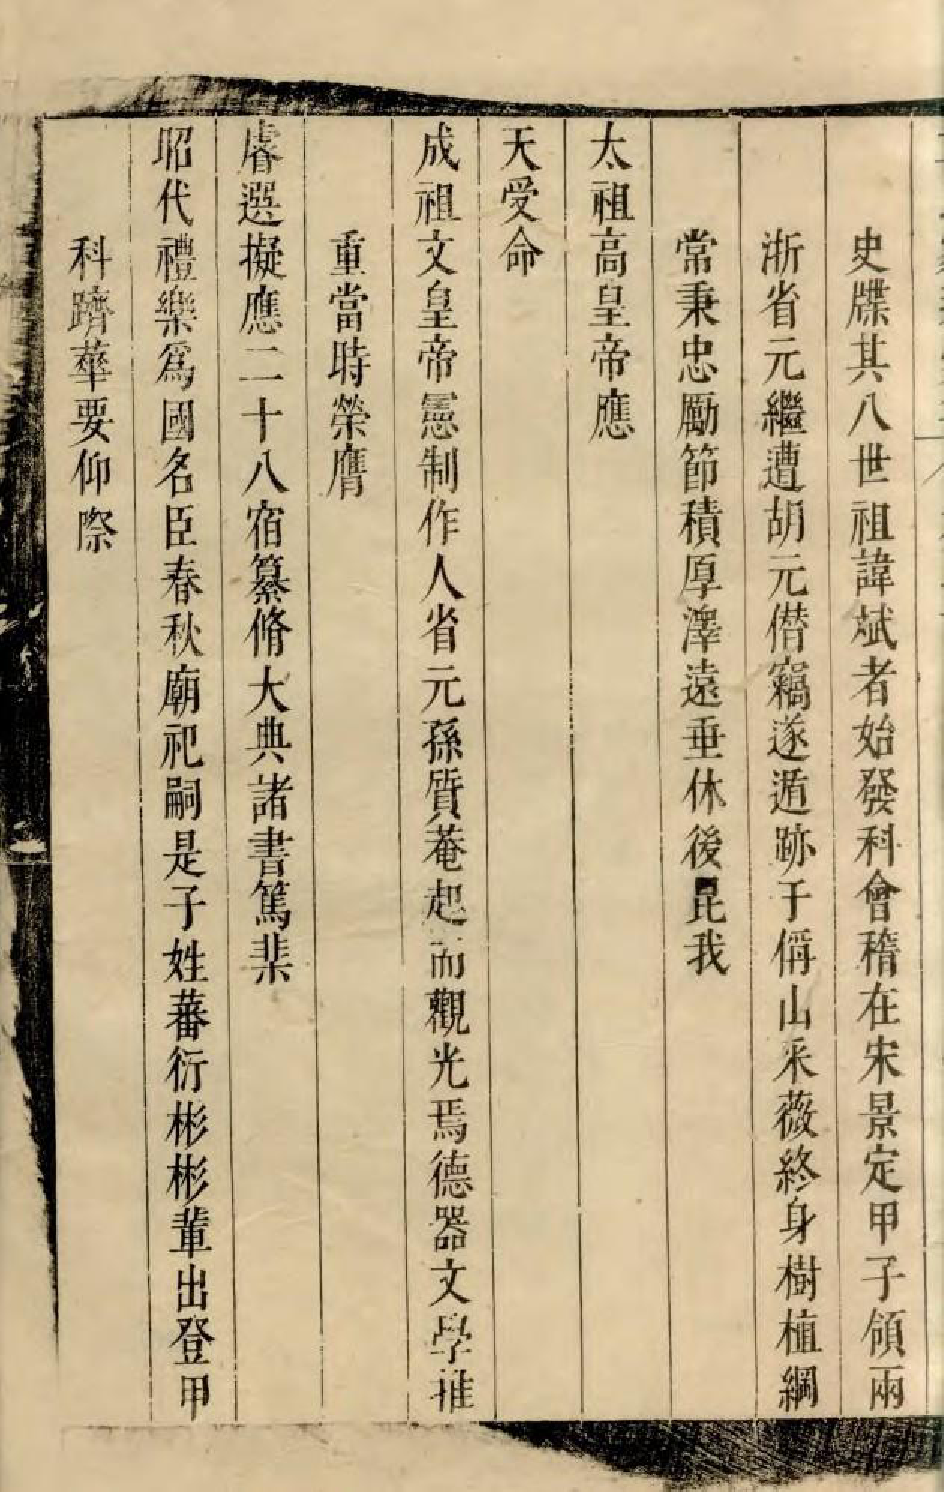 史牒其八世祖諱斌者始發科會稽在宋景定甲子領兩
浙省元繼遭胡元僭竊遂遁跡于偁山采薇終身樹植綱
常秉忠勵節積厚澤遠垂休後昆我
太祖高皇帝應
天受命
成祖文皇帝憲制作人省元孫質菴起而觀光焉德器文學推
重當時榮膺
睿選擬應二十八宿纂脩大典諸書篤棐
昭代禮樂爲國名臣春秋廟祀嗣是子姓蕃衍彬彬輩出登甲
科躋華要仰際